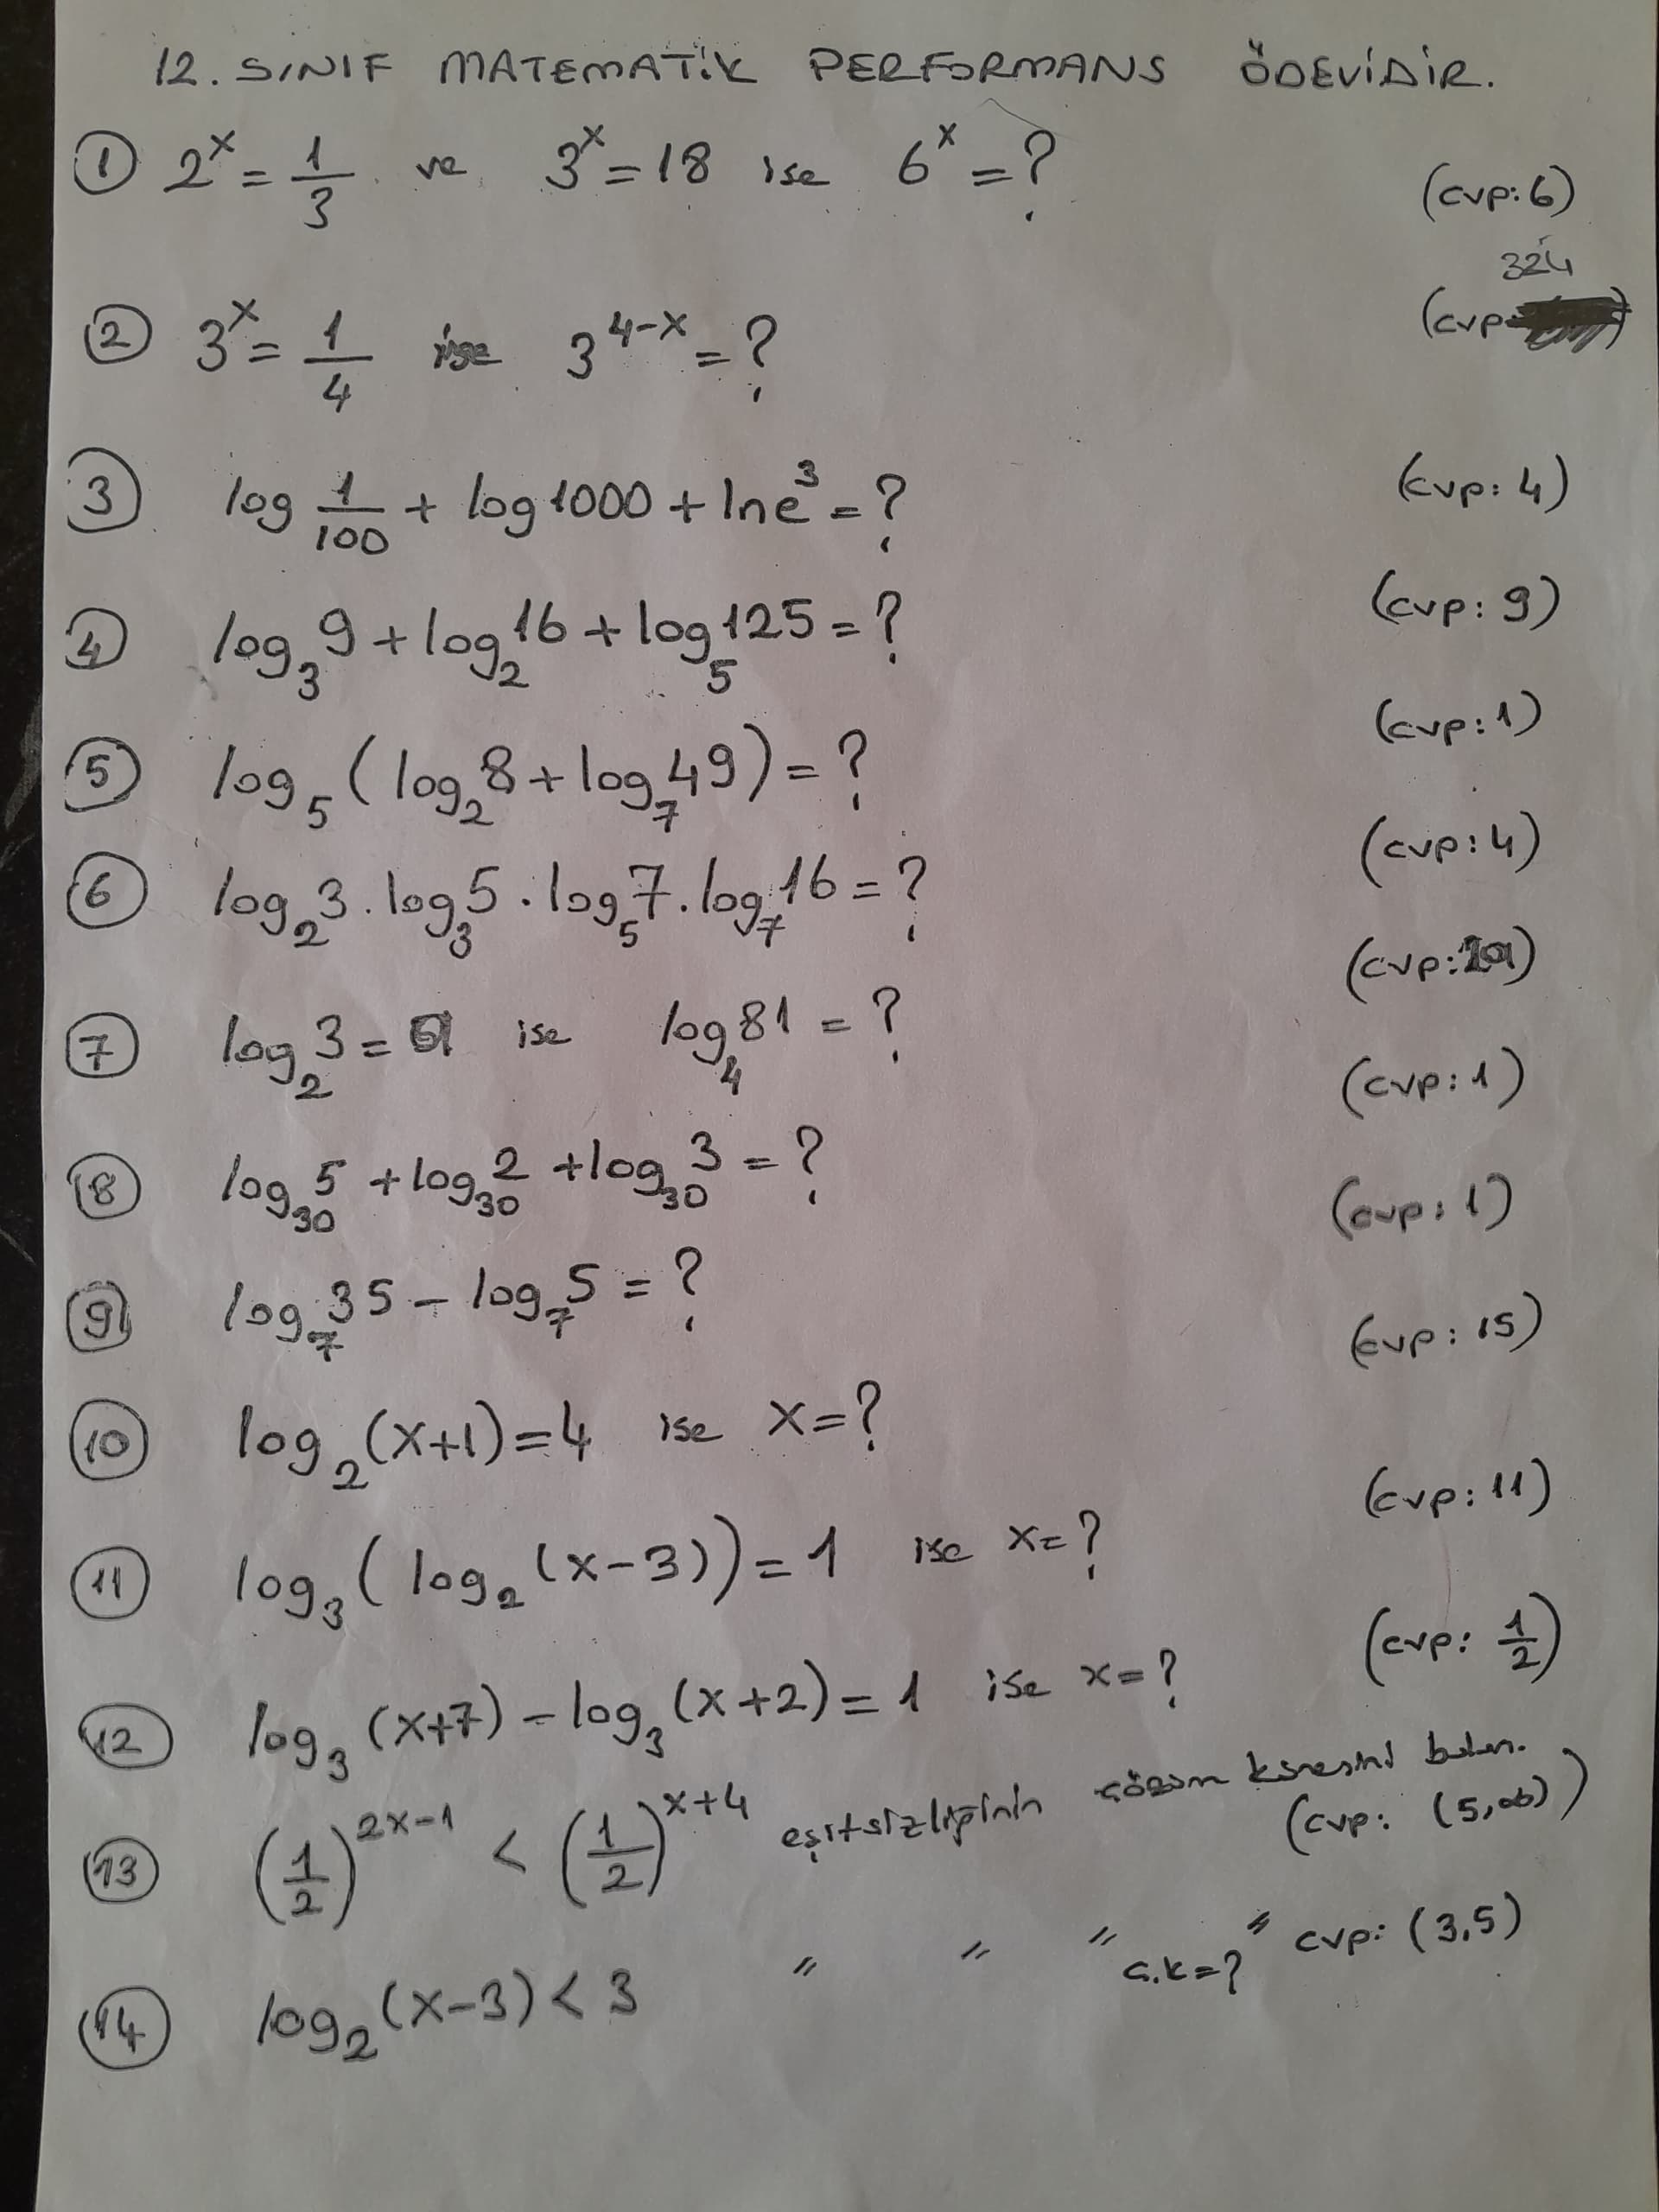 12. SINIF MATEMATİK PERFORMANS ÖDEVİDİR.
① 2^x = 1/3 ve 3^x = 18 ise 6^x = ? (cvp: 6)
② 3^x = 1/4 ise 3^(4-x) = ? (cvp: 324)
③ log 1/100 + log 1000 + ln e^3 = ? (cvp: 4)
④ log₃9 + log₂16 + log₅125 = ? (cvp: 9)
⑤ log₅(log₂8 + log₇49) = ? (cvp: 1)
⑥ log₂3 . log₃5 . log₅7 . log₇16 = ? (cvp: 4)
⑦ log₂3 = a ise log₄81 = ? (cvp: 2a)
⑧ log₃₀5 + log₃₀2 + log₃₀3 = ? (cvp: 1)
⑨ log₇35 - log₇5 = ? (cvp: 1)
⑩ log₂(x+1) = 4 ise x = ? (cvp: 15)
⑪ log₃(log₂(x-3)) = 1 ise x = ? (cvp: 11)
⑫ log₃(x+7) - log₃(x+2) = 1 ise x = ? (cvp: 1/2)
⑬ (1/2)^(2x-1) < (1/2)^(x+4) eşitsizliğinin çözüm kümesini bulun. (cvp: (5,∞))
⑭ log₂(x-3) < 3 " " " " Ç.K = ? cvp: (3,5)